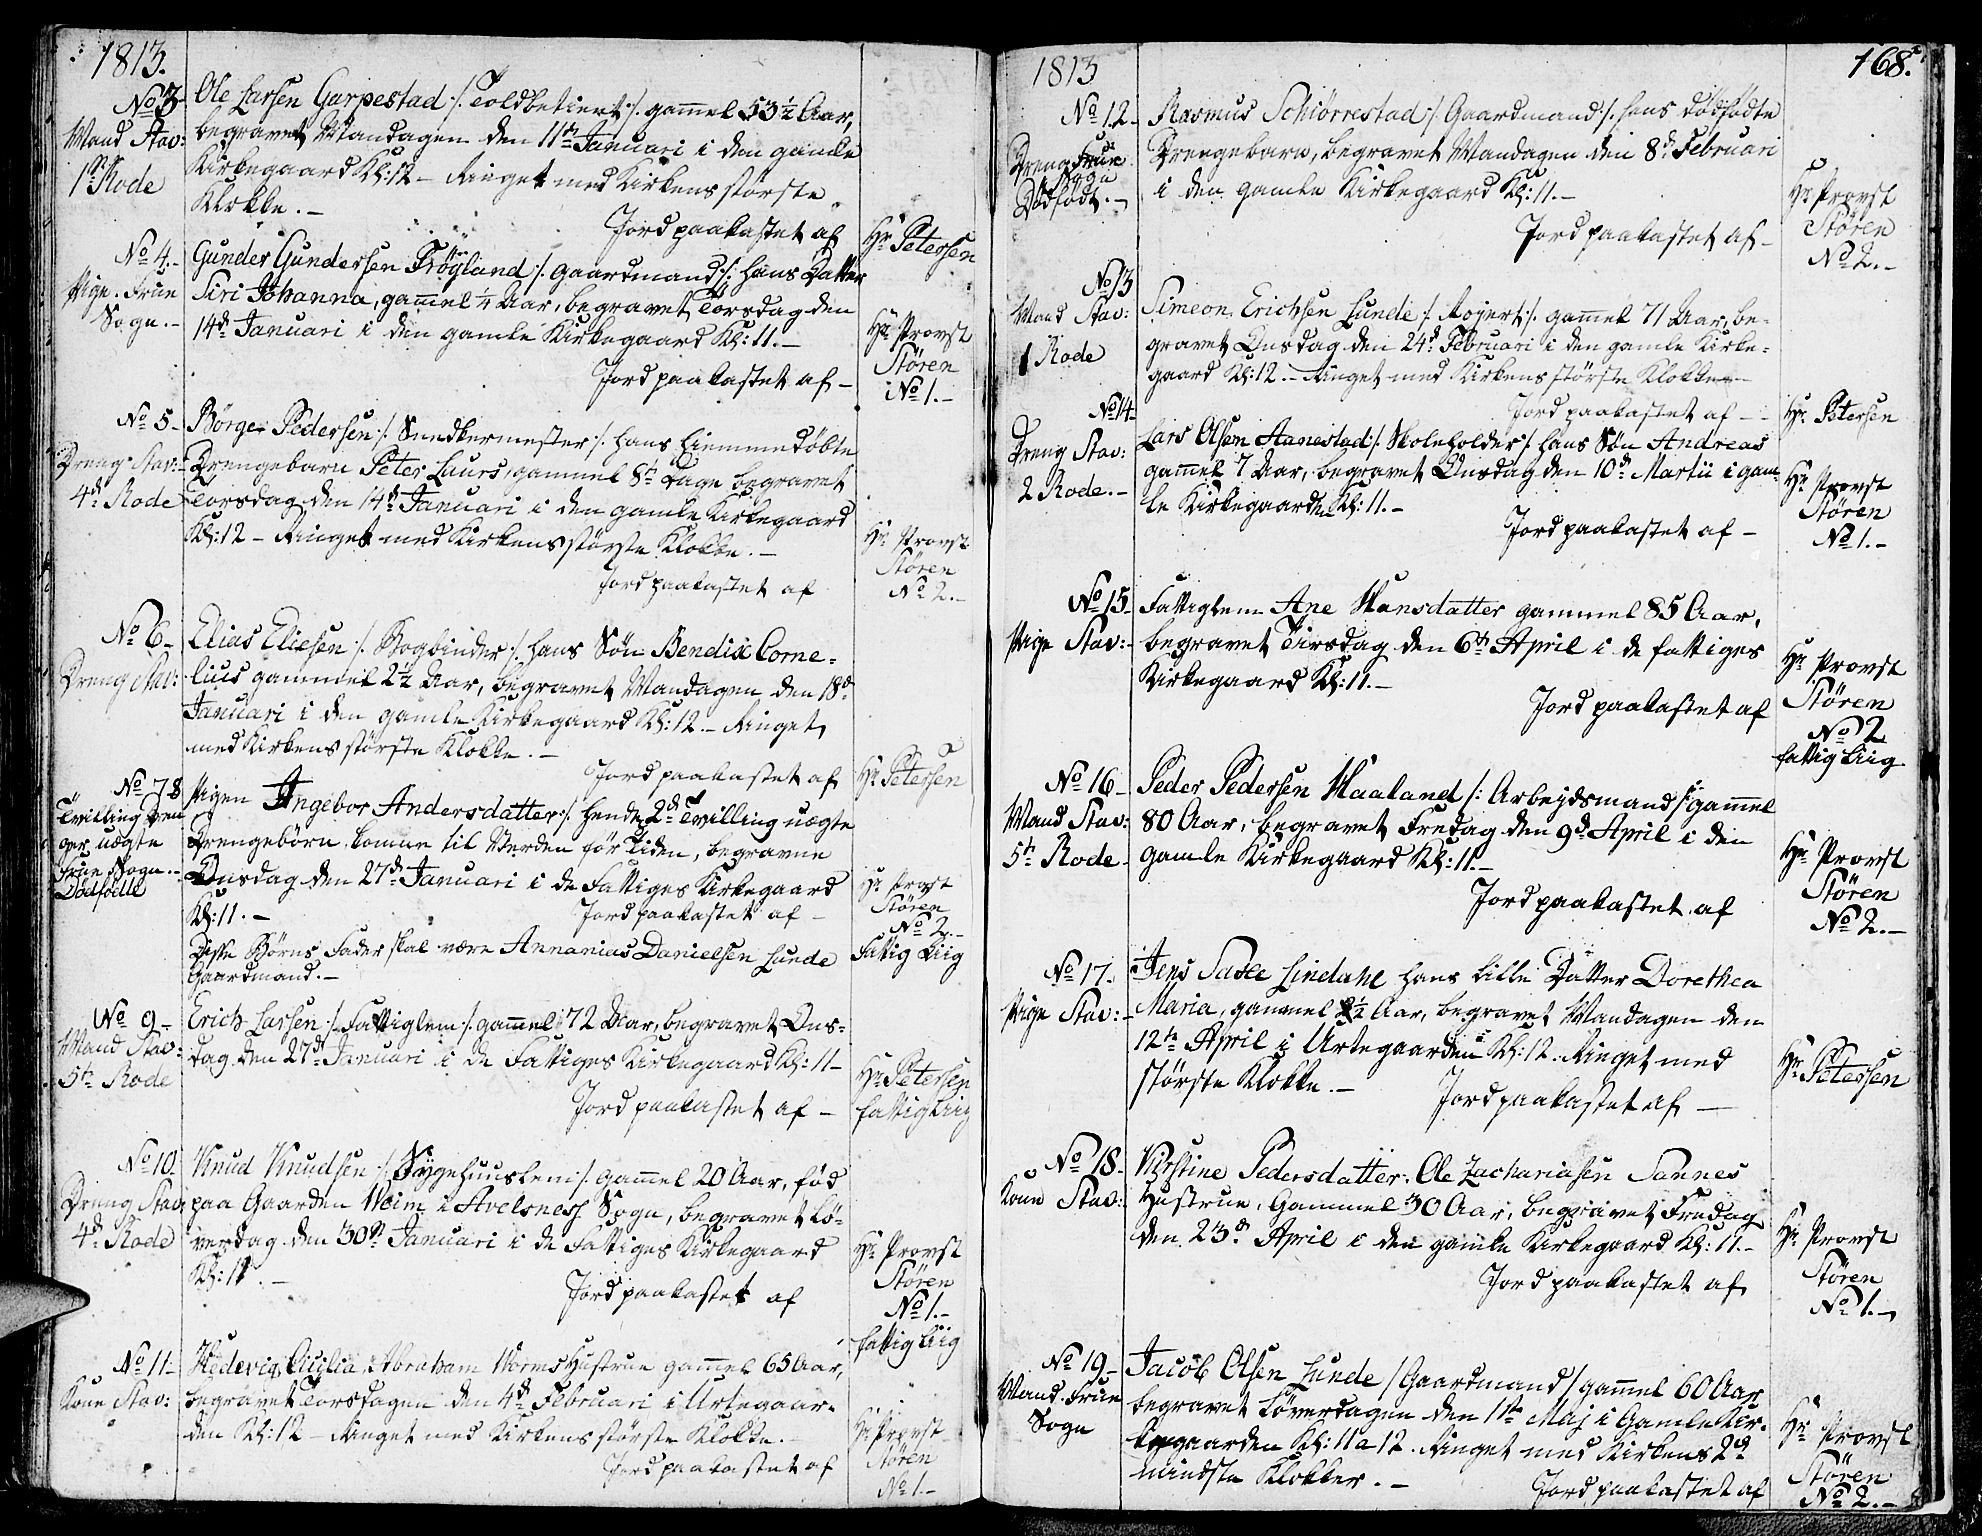 1813.
No 3
Mand Stav:
1st Rode
Ole Larsen Garpestad /: Toldbetient :/ gamel 53½ Aar,
begravet Mandagen den 11te Januari i den gamle
Kirkegaard Kl: 12 – Ringet med Kirkens största
Klokke. –
Jord paakastet af
Hr Petersen
No 4.
Pige. Frue
Sogn. –
Gunder Gundersen Fröyland /: gaardmand :/ hans Datter
Siri Johanna, gamel ¼ Aar, begravet Torsdag den
14de Januari i den gamle Kirkegaard Kl: 11. –
Jord paakastet af –
Hr Provst
Stören
No 1. –
No 5 –
Dreng Stav:
4de Rode
Börge Pedersen /: Snedkermester :/ hans Hiemmedöbte
Drengebarn Peter Laurs, gammel 8te Dage begravet
Torsdag den 14de Januari i den gamle Kirkegaard
Kl: 12 – Ringet med Kirkens större Klokke. –
Jord paakastet af
Hr Provst
Stören
No 2. –
No 6 –
Dreng Stav:
Elias Eliesen /: Bogbinder :/ hans Sön Bendix Corne-
lius gammel 2½ Aar, begravet Mandagen den 18de
Januari i den gamle Kirkegaard Kl: 12. – Ringet
med Kirkens störste Klokke. –
Jord paakastet af
Hr Petersen
No 7. 8
Tvilling Dren
ger uægte
Frue Sogn. –
Dödfödte
Pigen Ingebor Andersdatter :/ Hendes 2de Tvilling uægte
Drengebörn komne til Verden för Tiden, begravne
Onsdag den 27de Januari i de Fattiges Kirkegaard
Kl: 11. –
Jord paakastet af –
Disse Börns Fader skal være Annanias Danielsen Lunde
Gaardmand. –
Hr Provst
Stören
No 2. –
Fattig Liig
No 9 –
Mand Stav:
5te Rode
Erich Larsen /: Fattiglem :/ gamel 72 Aar, begravet Ons-
dag den 27de Januari i de Fattiges Kirkegaard Kl: 11 –
Jord paakastet af –
Hr Petersen
fattig Liig
No 10.
Dreng Stav:
4de Rode
Knud Knudsen /: Sygehuuslem :/ gamel 20 Aar, föd
paa Gaarden Heim i Avelsnes Sogn, begravet Lö-
verdag den 30te Januari i de Fattiges Kirkegaard
Kl: 11. –
Jord paakastet af
Hr Provst
Stören
No 1. –
fattig Liig
No 11 –
Kone Stav:
Hedevig Cicilia Abraham Worms Hustrue gamel 65 Aar,
begravet Torsdagen den 4de Februari i Urtegaar-
den Kl: 12 – Ringet med Kirkens störste Klokke. –
Jord paakastet af
Hr Provst
Stören
No 1. –
1813
168.
No 12 –
Dreng Frue
Sogn
Dödfödt. –
Rasmus Schiörrestad /: Gaardmand :/ hans dödfödte
Drengebarn, begravet Mandagen den 8de Februari
i den gamle Kirkegaard Kl: 11. –
Jord paakastet af –
Hr Provst
Stören
No 2. –
No 13
Mand Stav:
1 Rode
Simeon Erichsen Lunde /: Royert :/ gamel 71 Aar, be-
gravet Onsdag den 24de Februari i den gamle Kirke-
gaard Kl: 12. – Ringet med Kirkens störste Klokke –
Jord paakastet af –
Hr Petersen
No 14 –
Dreng Stav:
2 Rode. –
Lars Olsen Aanestad /: Skoleholder :/ hans Sön Andreas
gamel 7 Aar, begravet Onsdag den 10de Martii i gam-
le Kirkegaarden Kl: 11. –
Jord paakastet af –
Hr Provst
Stören
No 1. –
No 15 –
Pige Stav: –
Fattiglem Ane Hansdatter gammel 85 Aar,
begravet Tirsdag den 6te April i de fattiges
Kirkegaard Kl: 11. –
Jord paakastet af
Hr Provst
Stören
No 2
fattig Liig.
No 16 –
Mand Stav:
5te Rode –
Peder Pedersen Haaland /: Arbejdsmand :/ gamel
80 Aar, begravet Fredag den 9de April i den
gamle Kirkegaard Kl: 11. –
Jord paakastet af
Hr Provst
Stören
No 2. –
No 17.
Pige Stav: –
Jens Saxe Lindahl hans lille Datter Dorethea
Maria, gammel ½ Aar, begravet Mandagen den
12te April i Urtegaarden Kl: 12. Ringet med
störste Klokke. –
Jord paakastet af –
Hr Petersen
No 18 –
Kone Stav:
Kirstine Pedersdatter: Ole Zachariasen Sannes
Hustrue, Gammel 30 Aar, begravet Fredag
den 23de April i den gamle Kirkegaard Kl: 11. –
Jord paakastet af
Hr Provst
Stören
No 1. –
No 19 –
Mand. Frue
Sogn
Jacob Olsen Lunde / Gaardmand / gamel 60 Aar
begravet Löverdagen den 1ste Maj i Gamle Kir-
kegaarden Kl: 11 a 12. Ringet med Kirkens 2de
mindste Klokker. –
Jord paakastet af
Hr Provst
Stören
No 2. –